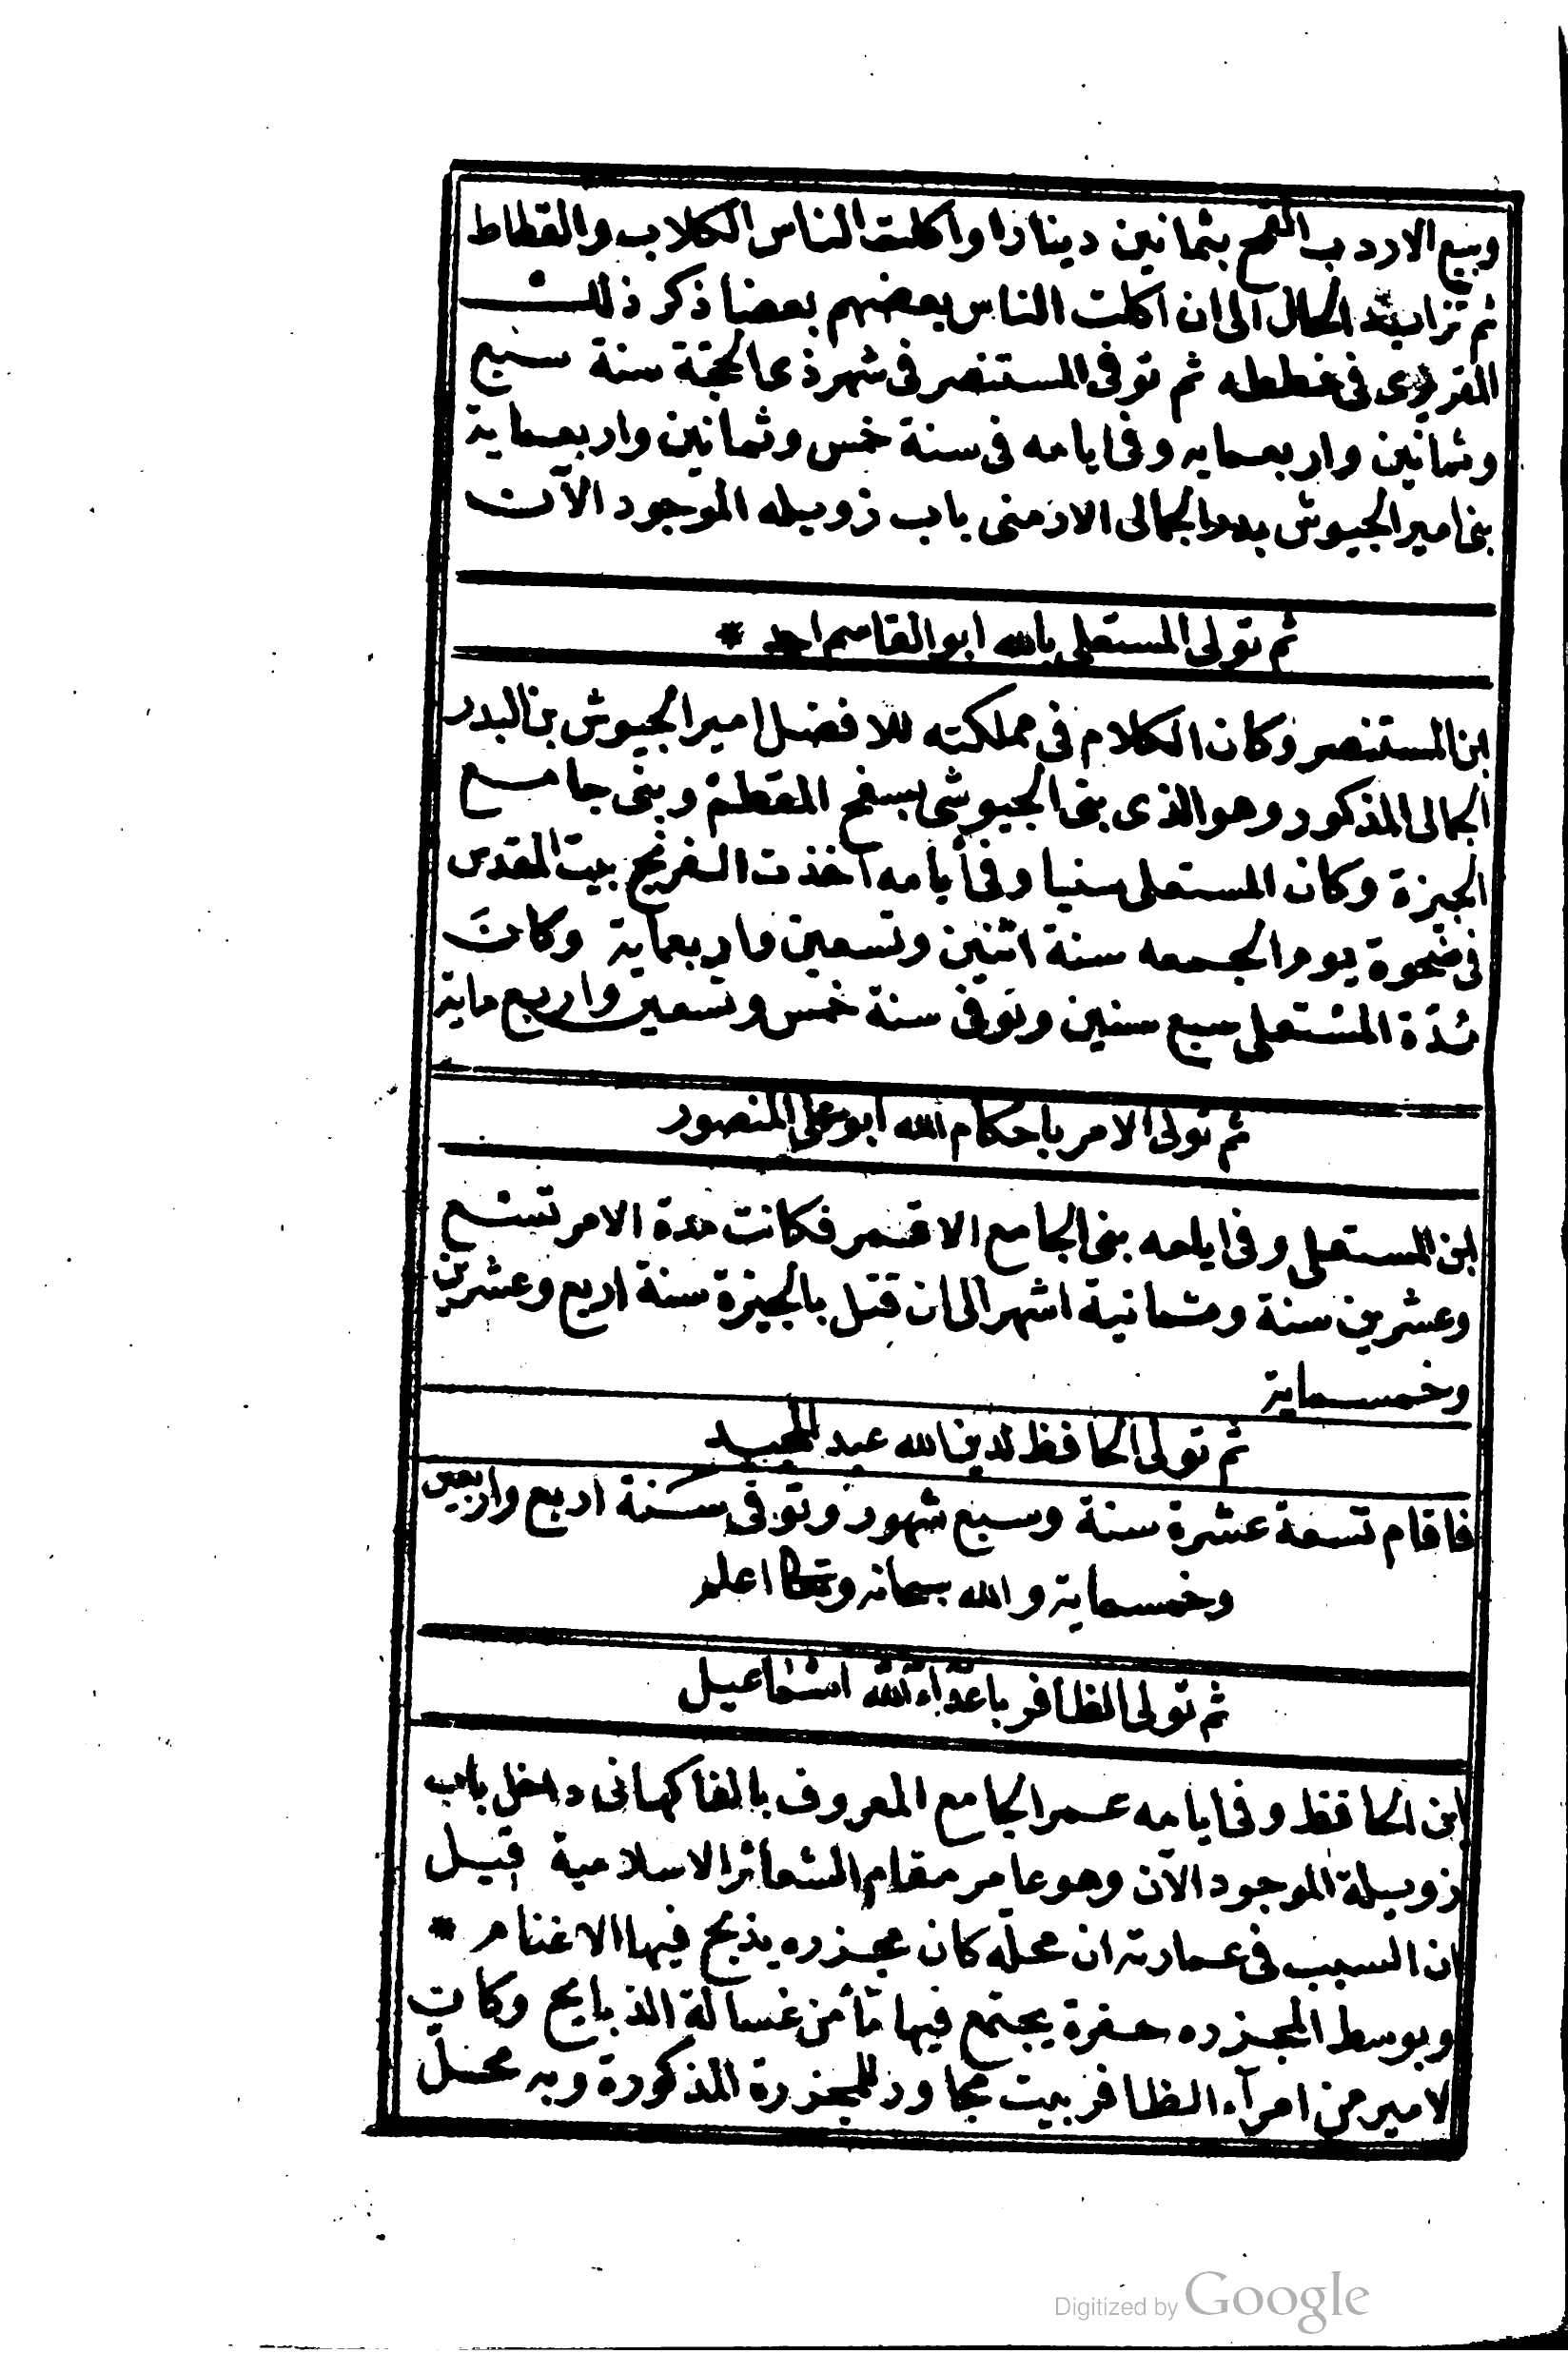 وبيع الاردب القمح بثمانين دينارا واكلت الناس الكلاب والقطاط
ثم تزايد الحال الى ان اكلت الناس بعضهم بعضا ذكر ذلك
المقريزى فى خططه ثم توفى المستنصر فى شهر ذى الحجة سنة سبع
وثمانين واربعمايه وفى ايامه فى سنة خمس وثمانين واربعماية
بنى امير الجيوش بدر الجمالى الارمنى باب زويله الموجود الآن
ثم تولى المستعلى بالله ابو القاسم احمد *
ابن المستنصر وكان الكلام فى مملكته للافضل امير الجيوش بن البدر
الجمالى المذكور وهو الذى بنى الجيوشى بسفح المقطم وبنى جامع
الجيزة وكان المستعلى سنيا وفى أيامه اخذت الفرنج بيت المقدس
فى ضحوة يوم الجمعه سنة اثنين وتسعين واربعماية وكانَ
مدة المستعلى سبع سنين وتوفى سنة خمس وتسعين واربع ماية
ثم تولى الامر باحكام الله ابو على المنصور
ابن المستعلى وفى ايامه بنى الجامع الاقمر فكانت مدة الامر تسع
وعشرين سنة وثمانية اشهر الى ان قتل بالجيزة سنة اربع وعشرين
وخمسماية
ثم تولى الحافظ لدين الله عبد المجيد
فاقام تسعة عشرة سنة وسبع شهور وتوفى سنة اربع واربعين
وخمسماية والله سبحانه وتعالى اعلم
ثم تولى الظافر باعداء الله اسماعيل
ابن الحافظ وفى ايامه عمر الجامع المعروف بالفاكهانى داخل باب
زويلة الموجود الآن وهو عامر مقام الشعائر الاسلامية قيل
ان السبب فى عمارته ان محله كان مجزره يذبح فيها الاغنام *
وبوسط المجزره حفرة يجتمع فيها مأمن غسالة الذبايح وكان
لامير من امرآء الظافر بيت مجاور للمجزرة المذكورة وبه محل
Digitized by Google